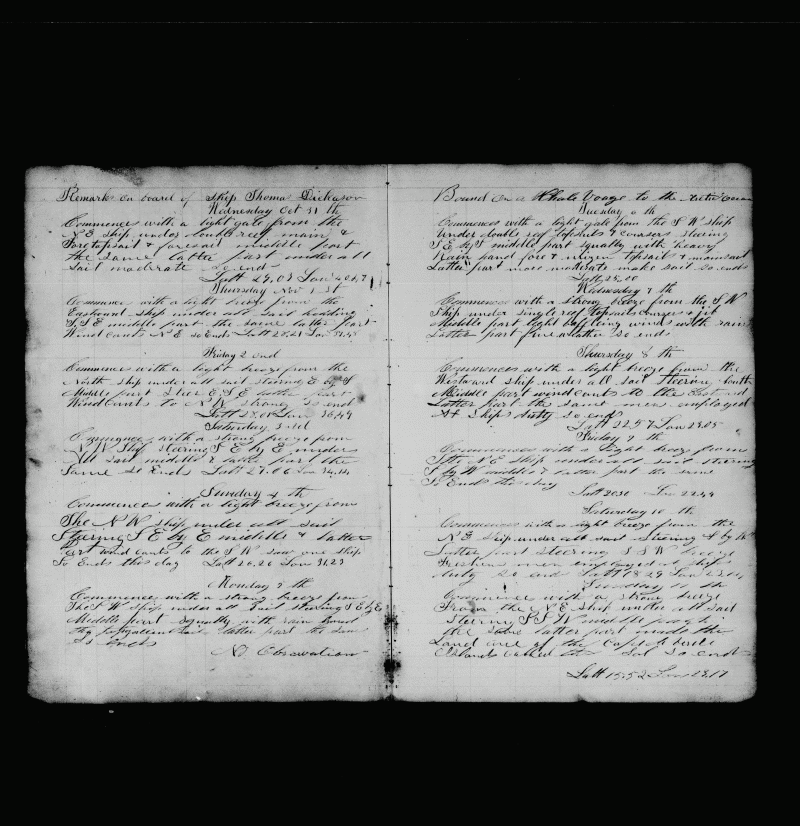 Remarks on board of Ship Thomas Dickason
Wednesday Oct 31 th
Commences with a light gale from the
N E Ship under double reef main &
Foretopsail & foresail middle part
the same latter part under all
sail moderate So end
Latt 29,09 Lon 40,47
Thursday Nov 1 st
Commence with a light breeze from the
Eastward ship under all sail heading
S, S E middle part the same latter part
Wind Cants N E So Ends Latt 28,21 Lon
Friday 2 ond
Commence with a light breeze from the
North ship under all sail stearing E by S
Middle part Steer E S E latter part
Wind Cants to N W strong So end
Latt 28,01 Lon 36,49
Saturday 3 rd
Commences with a strong breeze from
N W Ship stearing S E by E under
All sail middle & latter part the
Same So Ends Latt 27.06 Lon 34,14
Sunday 4 th
Commences with a light breeze from
The N W ship under all sail
Stearing S E by E middle & latter
part wind cants to the S W saw one ship
So Ends this day Latt 26,20 Lon 31,23
Monday 5 th
Commences with a strong breeze from
The S W ship under all sail stearing S E by E
Middle part squally with rain furled
the topgallent sail latter part the same
So Ends
No Observation
Bound on a Whale Voage to the Arctic Ocean
Tuesday 6 th
Commences with a light gale from the S W ship
Under double reef topsails & courses steering
S E by S middle part squally with heavy
Rain hand fore & mizen topsail & mainsail
Latter part more moderate make sail so ends
Latt 25,00
Wednesday 7 th
Commences with a strong breeze from the S W
Ship under single reef topsails courses & jib
Middle part light baffleing winds with rain
Latter part fine weather So ends
Thursday 8 th
Commences with a light breeze from the
Westward ship under all sail steering South
Middle part wind cants to the Eastward
Latter part the same men employed
At Ships duty So end
Latt 22.57 Lon 28.05
Friday 9 th
Commences with a light breeze from
S E under all sail steering
S by W middle & latter part the same
So Ends this day
Latt 20.30 Lon 22.44
Saturday 10 th
Commences with a light breeze from the
N E Ship under all sail stearing S by W
Latter part steering S S W breeze
Freshen men employed at ships
duty So end Latt 18.29 Lon
Sunday 11 th
Commence with a strong breeze
From the N E ship under all sail
Steering S S W middle part
the same latter part made the
Land one of the Cape de Verde
Islands called So ends
Latt 15.52 Lon 23.17